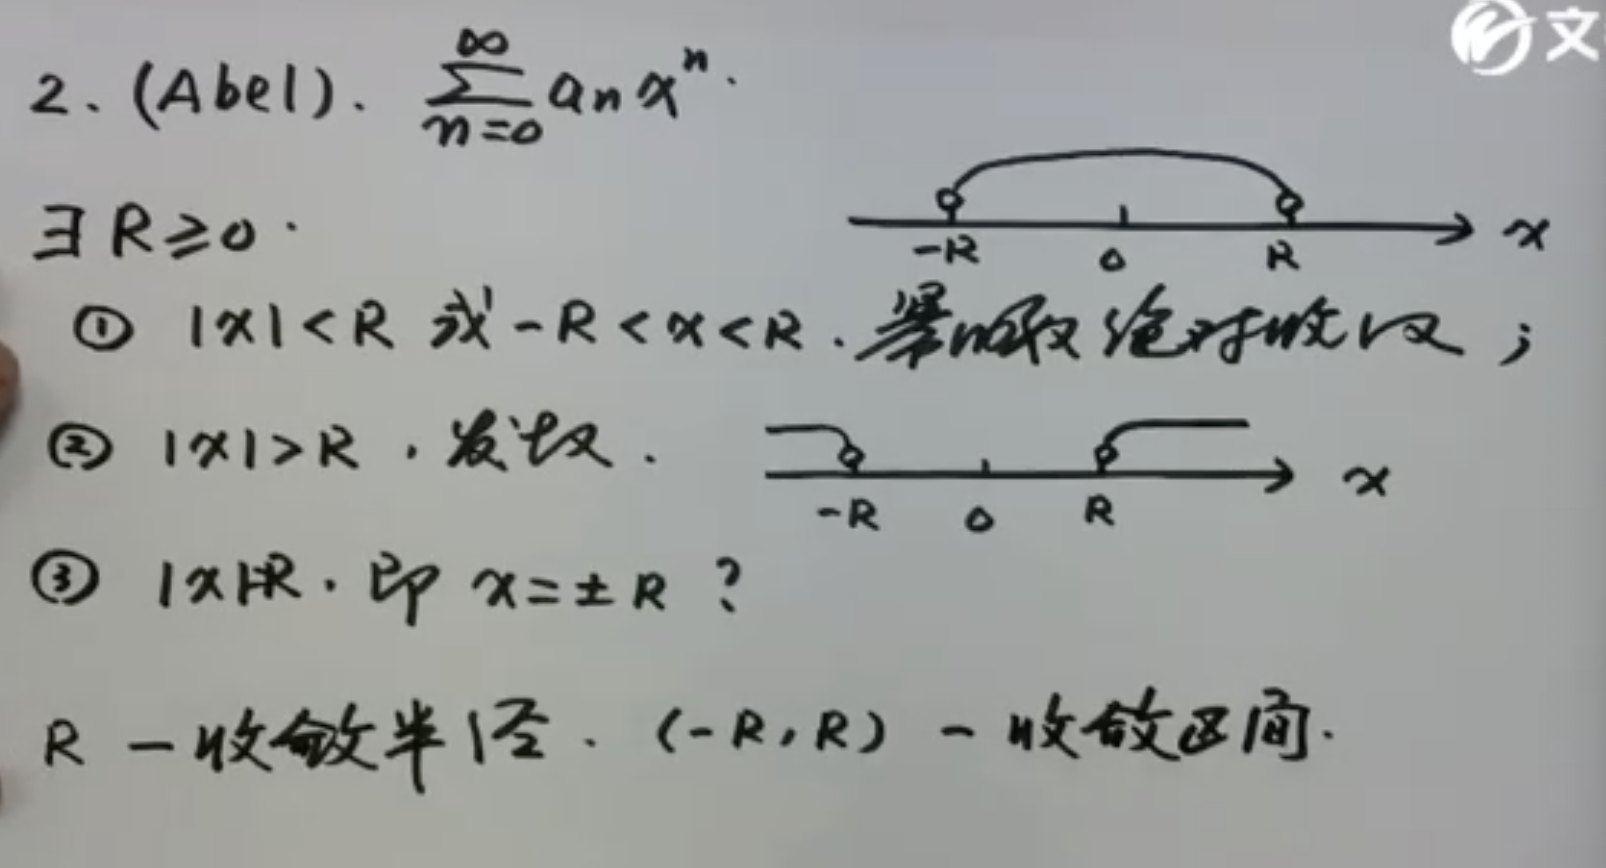 文
2. (Abel). ∞∑n=0 aₙxⁿ.
∃ R⩾0.
-R 0 R x
① |x|<R 或 -R<x<R. 幂级数绝对收敛;
② |x|>R, 发散.
-R 0 R x
③ |x|=R. 即 x=±R ?
R — 收敛半径. (-R, R) — 收敛区间.